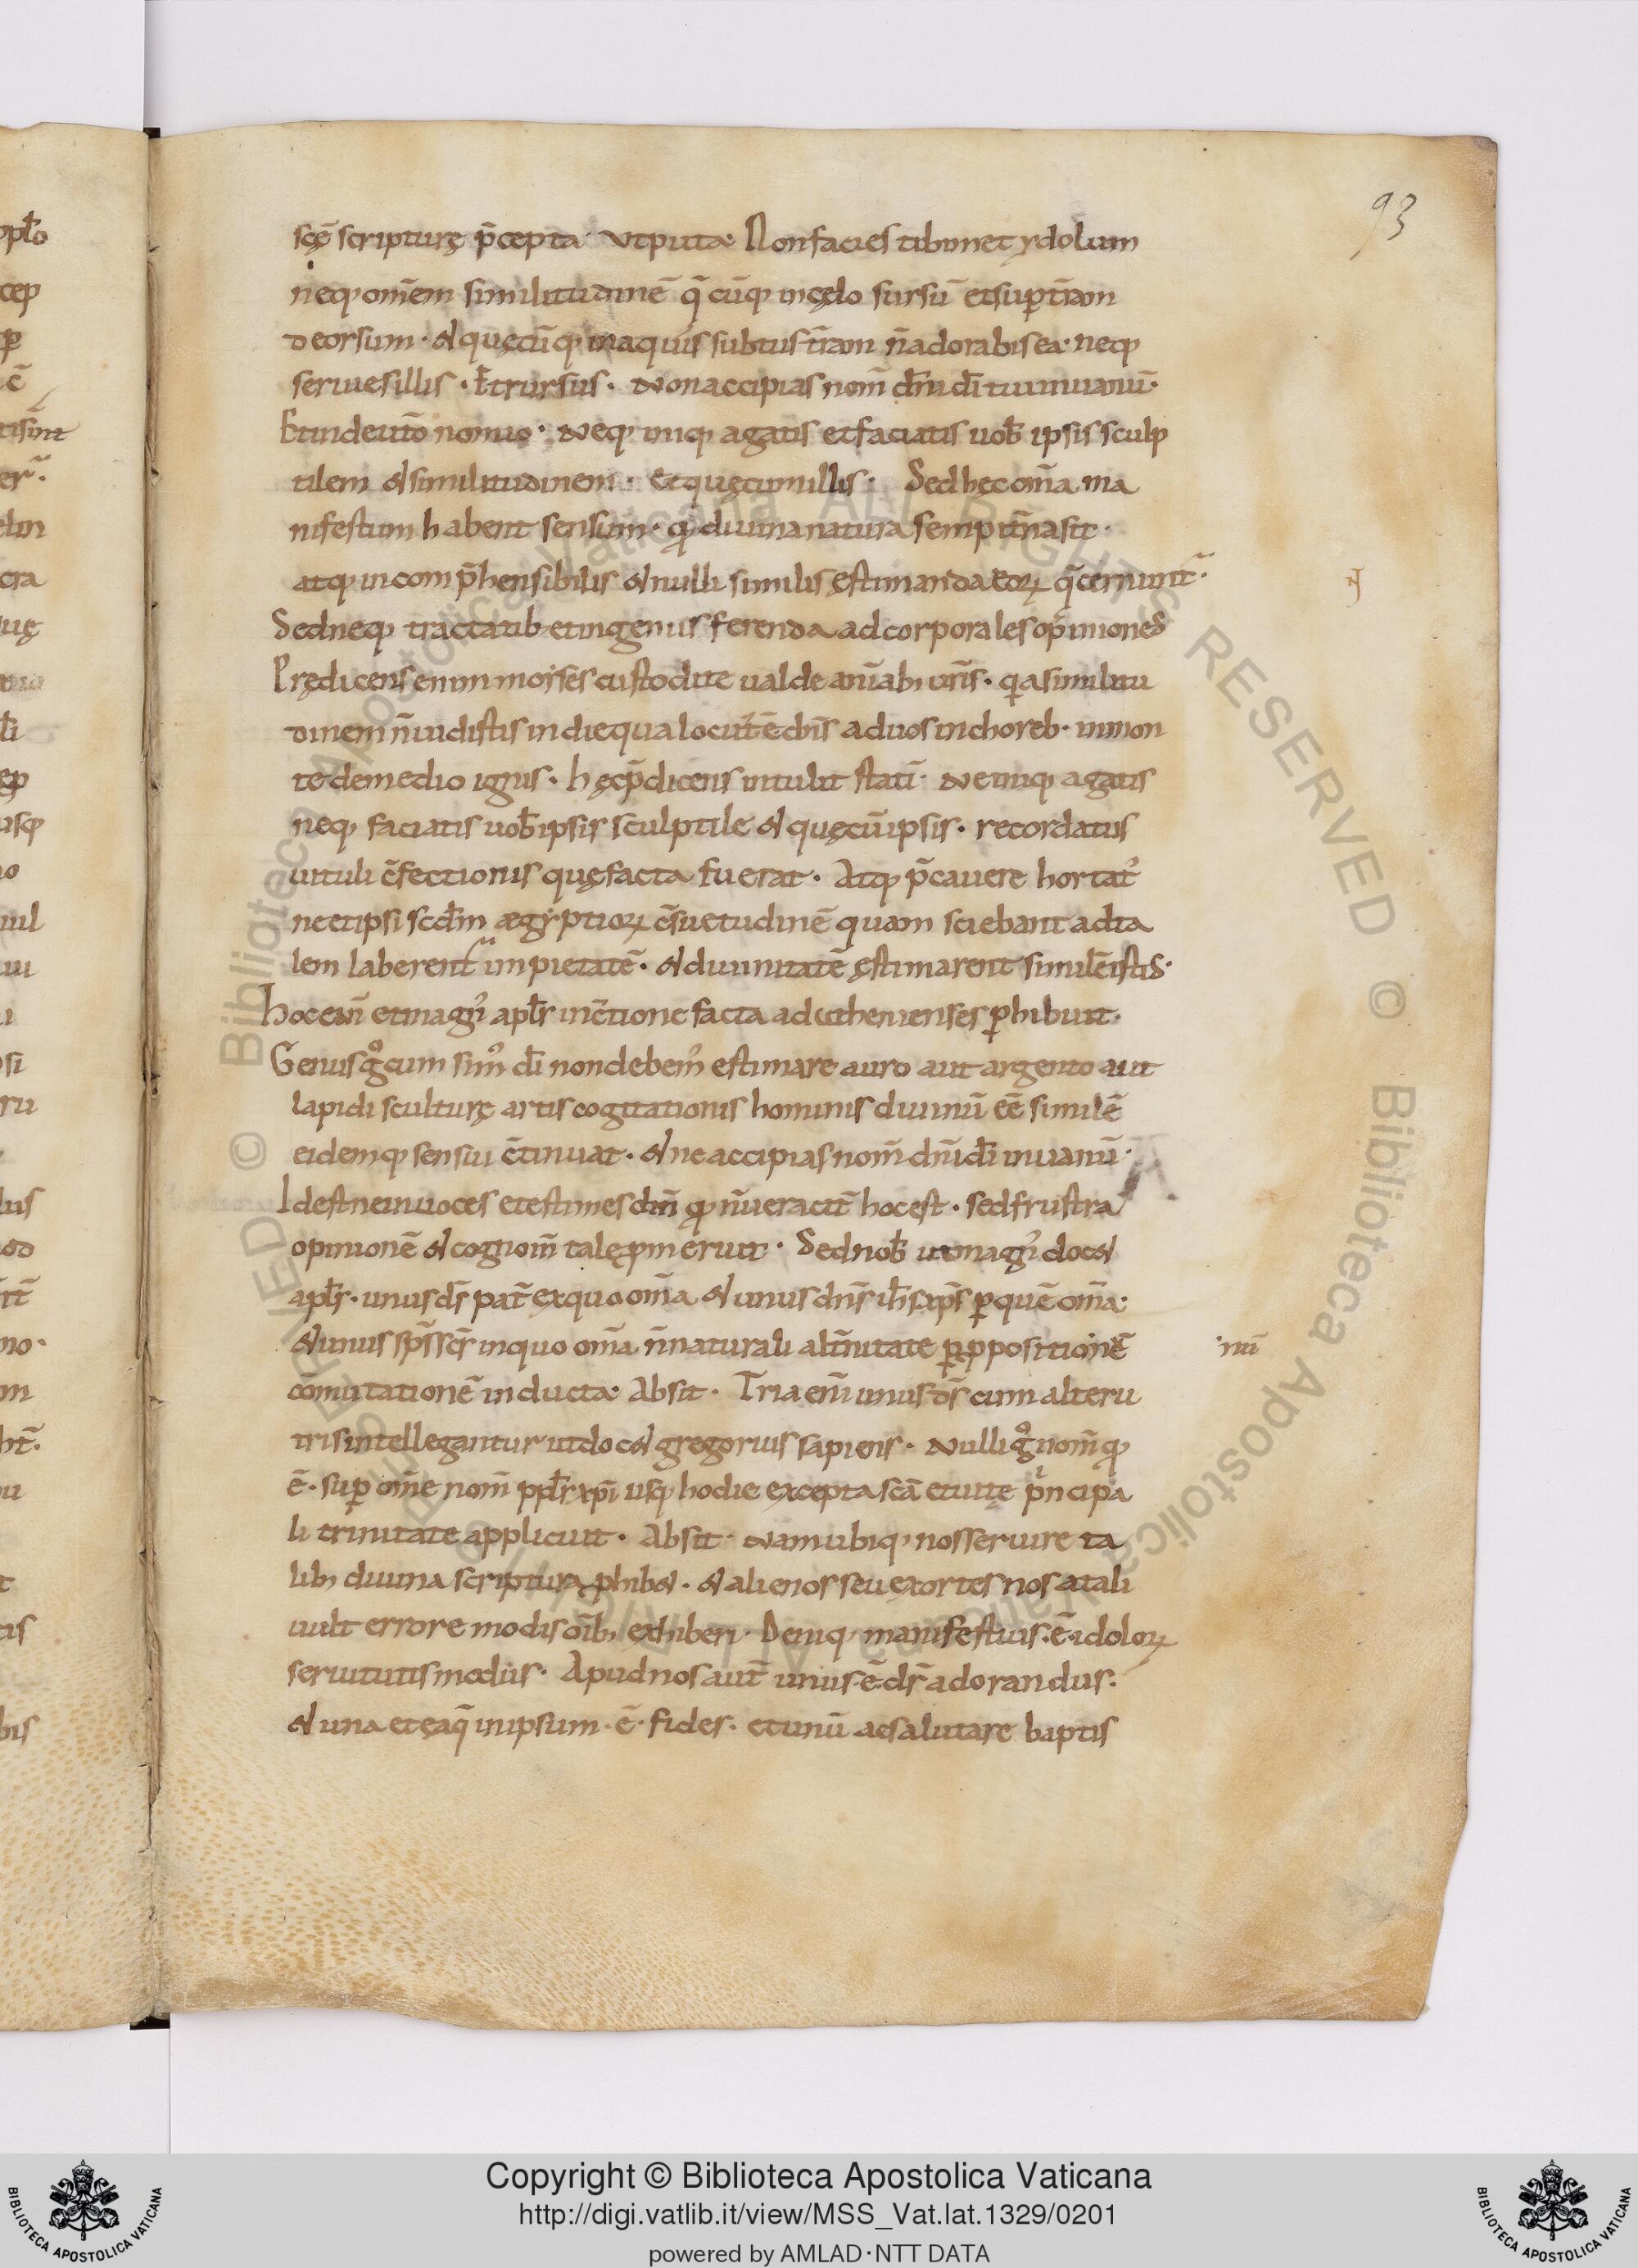 93
scę̄ scripturę p̄cepta· Vtputa· Nonfacies tibimet ydolum
neq; om̄em similitudinē q̄cūq; incęlo sursū etsup t̄ram
deorsum· & quęcūq; inaquis subtus t̄ram n̄adorabis ea· neq;
seruies illis· Et rursus· Non accipias nom̄ dn̄i dī tui inuanū·
Et indeut̄o nomio· Neq; iniq; agatis et faciatis uob̄ ipsis sculp
tilem & similitudinem· et quęcumillis· Sed hęc om̄a ma
nifestum habent sensum· qd diuina natura sempit̄na sit·
atq; incomp̄hensibilis & nulli similis ęstimanda eoꝝ q̄ cernunt̄·
Sed neq; tractatib; et ingeniis ferenda ad corporales opiniones
Prędicens enim moises custodite ualde anīab; ur̄is· q̄a similitu
dinem n̄ uidistis in die qua locut' ē dn̄s ad uos in choreb· in mon
te de medio ignis· hęc p̄dicens intulit statī· Ne iniq; agatis
neq; faciatis uob̄ ipsis sculptile & quęcūipsis· recordatus
uituli c̄fectionis quę facta fuerat· Atq; p̄cauere hortat'
ne et ipsi scd̄m ægyptioꝝ c̄suetudinē quam sciebant ad ta
lem laberent̄ impietatē· & diuinitatē ęstimarent similē istis·
Hoc enī et magn' apl̄s in c̄tione facta ad athenienses phibuit·
Genus g° cum sim' dī non debem' estimare auro aut argento aut
lapidi sculturę artis cogitationis hominis diuinū eē similē
eidemq; sensui c̄tinuat· & ne accipias nom̄ dn̄i dī in uanū·
Id est ne inuoces et estimes dm̄ qd n̄ ueracit̄ hoc est· sed frustra
opinionē & cognom̄ tale pmeruit· Sed nob̄ ut magn' doc&
apl̄s· unus ds̄ pat̄ ex quo om̄a & unus dn̄s ih̄s xp̄s p quē om̄a·
& unus sp̄s sc̄s in quo om̄a n̄ naturali alt̄nitate p ppositionē
comutationē inducta· Absit· Tria enī unus ds̄ cum alteru
tris intellegantur ut doc& gregorius sapiens· Nulli g° nom̄ qd
ē· sup om̄e nom̄ ppl̄s xp̄i usq; hodie excepta scā et uitę pncipa
li trinitate applicuit· Absit· Nam ubiq; nos seruire ta
lib; diuina scriptura phib&· & alienos seu exortes nos a tali
uult errore modis oīb; exhiberi· Deniq; manifestius· ē· idoloꝝ
seruitutis modus· Apud nos aut̄ unus· ē· ds̄ adorandus·
& una et eaq̄ in ipsum· ē· fides· et unū ac salutare baptis
Copyright © Biblioteca Apostolica Vaticana
http://digi.vatlib.it/view/MSS_Vat.lat.1329/0201
powered by AMLAD·NTT DATA
BIBLIOTECA APOSTOLICA VATICANA
BIBLIOTECA APOSTOLICA VATICANA